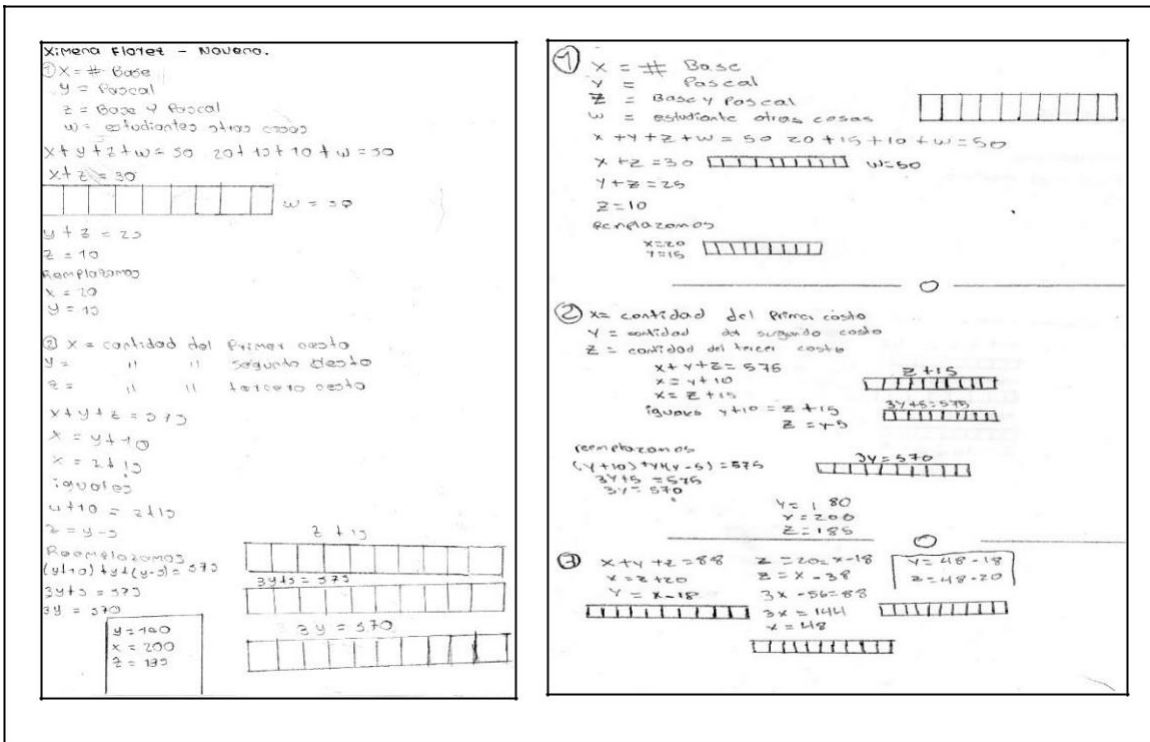 Ximena Florez - Noveno.
① X = # Base
y = Pascal
z = Base y Pascal
w = estudiantes otras cosas
x + y + z + w = 50 20 + 15 + 10 + w = 50
x + z = 30
w = 50
y + z = 25
z = 10
Remplazamos
x = 20
y = 15
② X = cantidad del Primer cesto
y = " " segunto cesto
z = " " tercero cesto
x + y + z = 575
x = y + 10
x = z + 15
iguales
y + 10 = z + 15
z = y - 5
z + 15
Reemplazamos
(y+10) + y + (y-5) = 575
3y + 5 = 575
3y + 5 = 575
3y = 570
3y = 570
y = 190
x = 200
z = 185
① X = # Base
Y = Pascal
Z = Base y Pascal
W = estudiante otras cosas
x + y + z + w = 50 20 + 15 + 10 + w = 50
x + z = 30 w = 50
Y + z = 25
Z = 10
Remplazamos
X = 20
Y = 15
② X = cantidad del Primer costo
Y = cantidad de segundo costo
Z = cantidad del tercer costo
x + y + z = 575
x = y + 10
z + 15
x = z + 15
3y + 5 = 575
igualo y + 10 = z + 15
z = y - 5
reemplazamos
(y + 10) + y + (y - 5) = 575
3y = 570
3y + 5 = 575
3y = 570
Y = 1 80
x = 200
z = 185
x + y + z = 88 z = 20 = x - 18 Y = 48 - 18
x = z + 20 z = x - 38 z = 48 - 20
Y = x - 18 3x - 56 = 88
3x = 144
x = 48